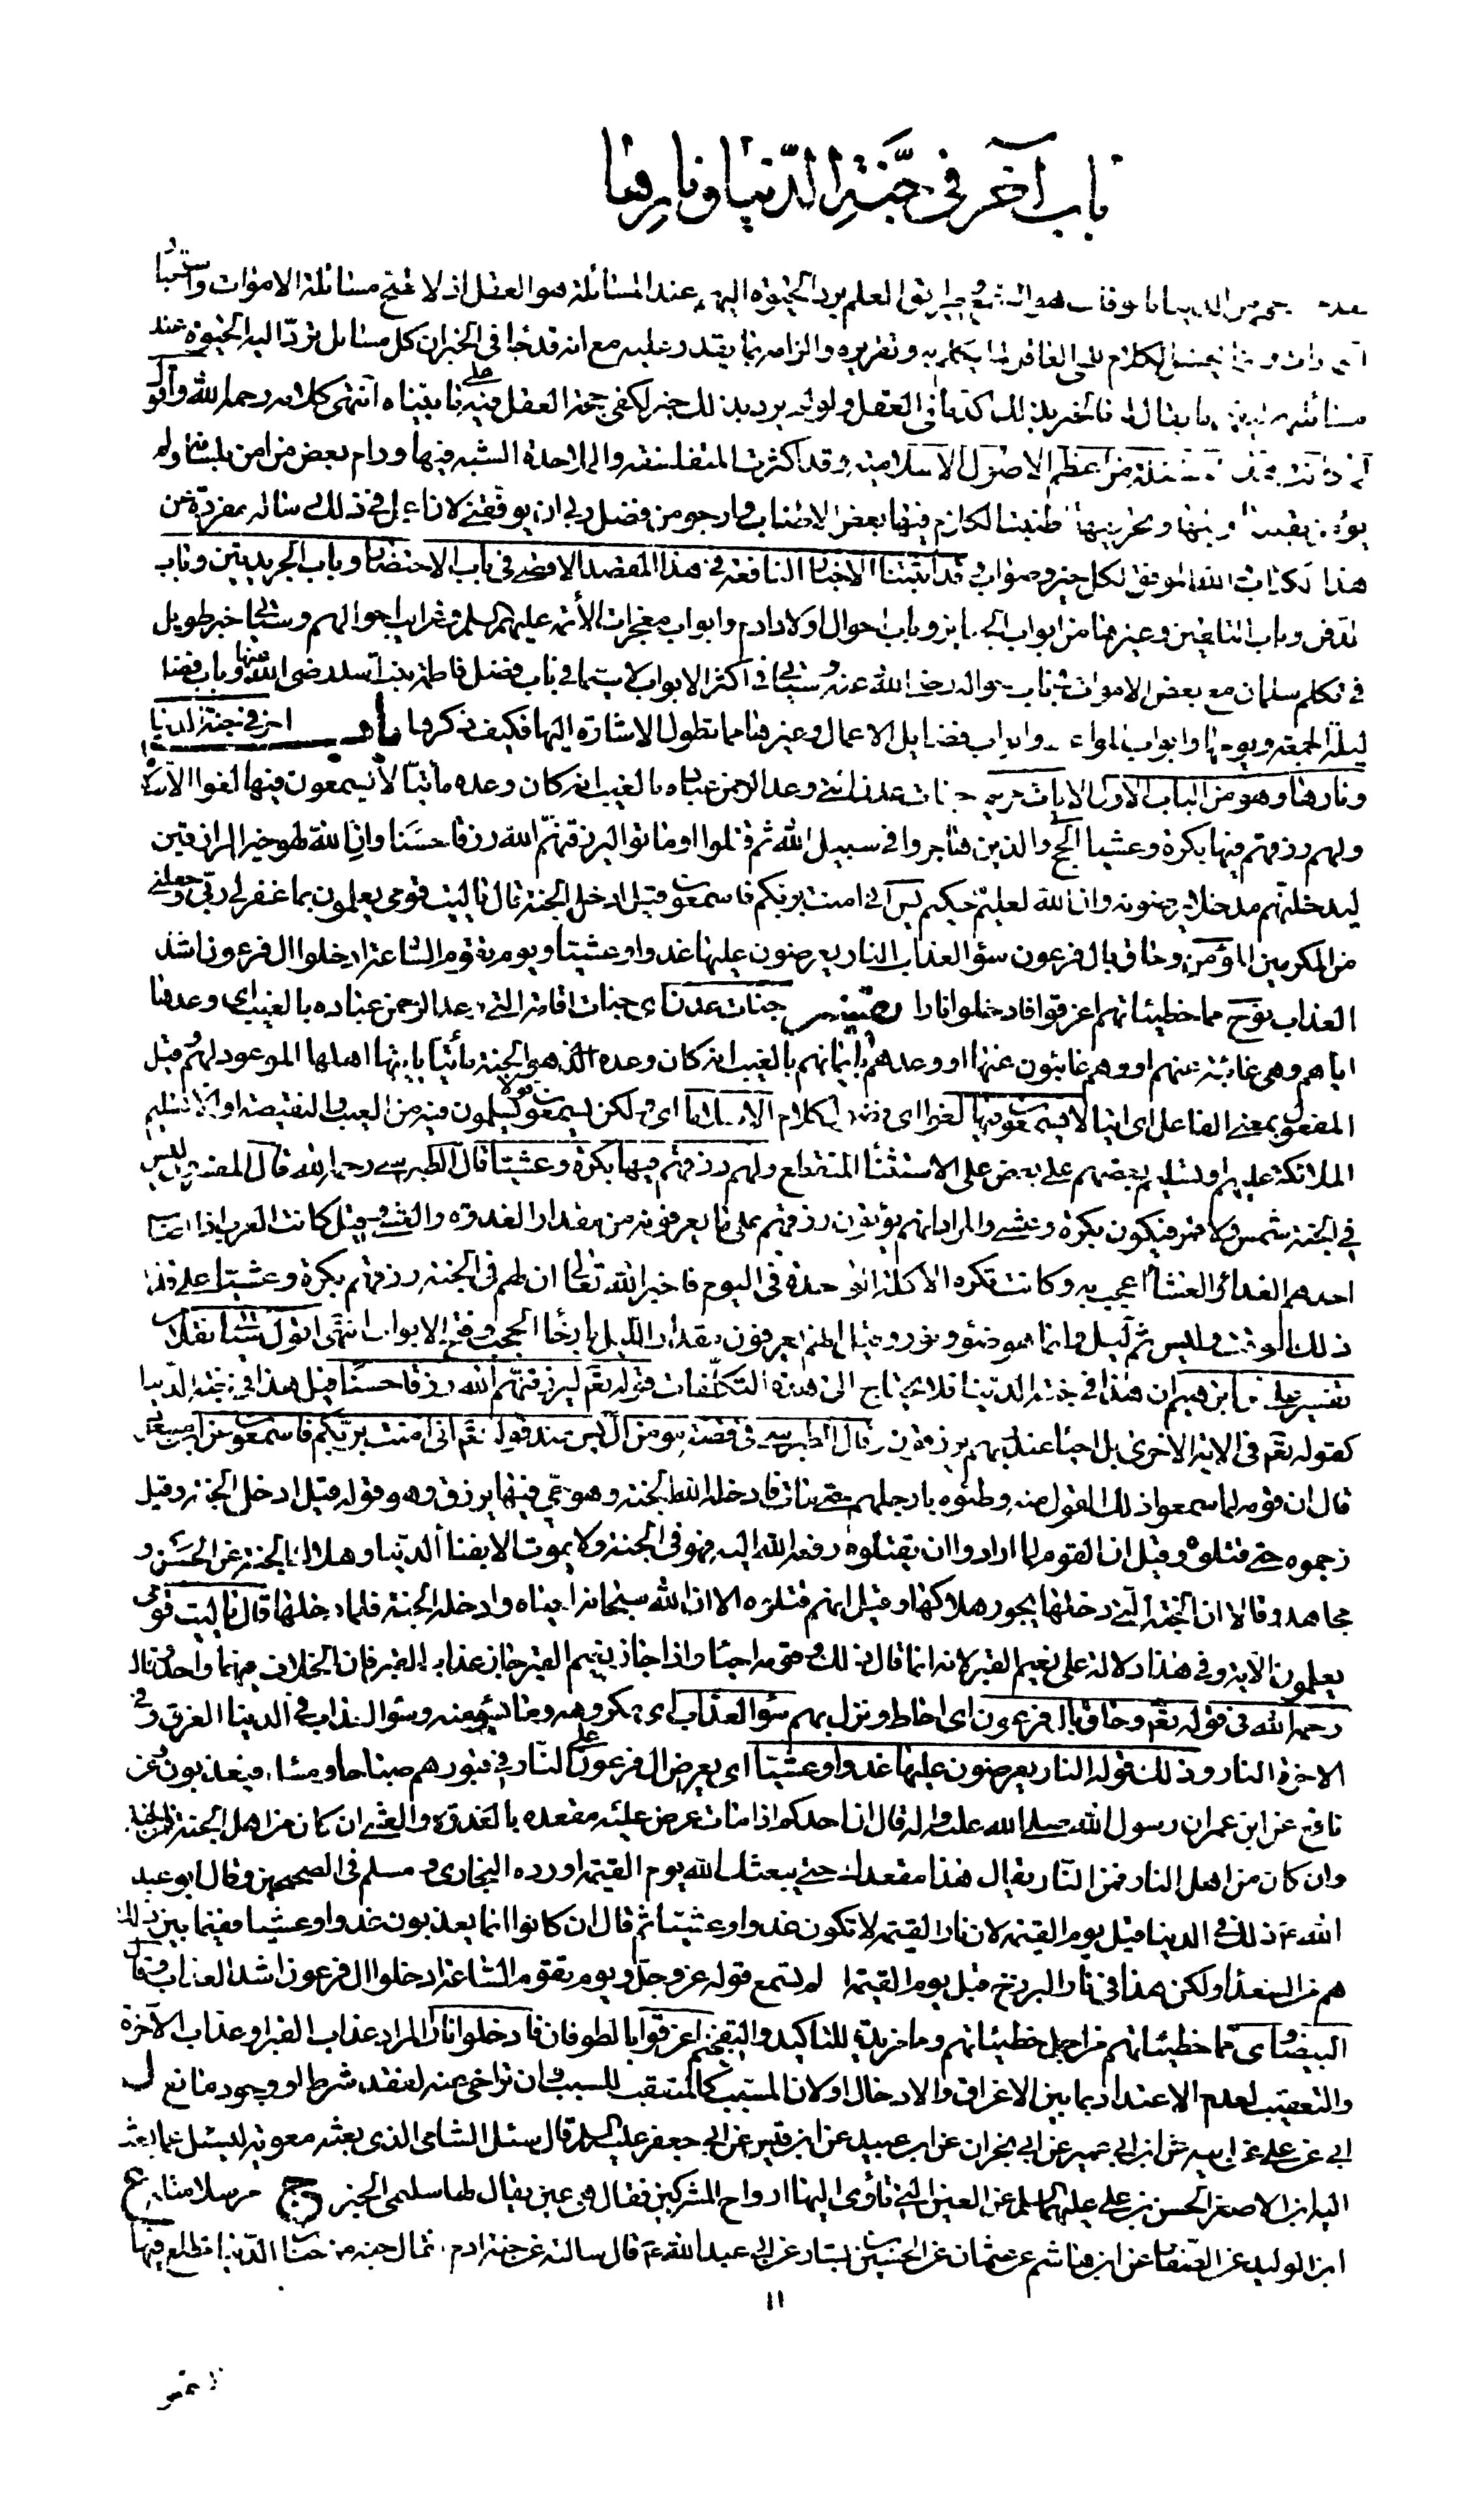 باب آخر في جنة الدنيا ونارها
طريق العلم برد الحيوة اليهم عند المسائلة هو العقل اذ لا تصح مسائلة الاموات
الكلام للحي العاقل لما يكلم به وتقريره والزامه بما يقدر عليه مع انه قد جاء في الخبر ان كل مسائل ترد اليه الحيوة عند
مسائلته ما يقال له فالخبر بذلك اكد ما في العقل ولو لم يرد بذلك خبر لكفى حجة العقل فيه على ما بيناه انتهى كلامه رحمه الله واقول
من اعظم الاصول الاسلامية وقد اكثرت المتفلسفة والملاحدة الشبه فيها ورام بعض من امن بلسانه ولم
يؤمن بقلبه اطنبنا الكلام فيها بعض الاطناب وارجو من فضل ربي ان يوفقني لان اعمل في ذلك رسالة مفردة عن
هذا الكتاب والله الموفق لكل خير وصواب وقد اثبتنا الاخبار النافعة في هذا المقصد الاقصى في باب الاحتضار وباب الجريدتين وباب
الدفن وباب التلقين وغيرها من ابواب الجنايز وباب احوال اولاد ادم وابواب معجزات الأئمة عليهم السلم وغرايب احوالهم وسياتي خبر طويل
في تكلم سلمان مع بعض الاموات في باب احواله رضي الله عنه وسياتي في اكثر الابواب لا سيما في باب فضل فاطمة بنت اسد رضي الله عنها وباب فضل
ليلة الجمعة ويومها وابواب المواعظ وابواب فضايل الاعمال وغيرها مما تطول الاشارة اليها فكيف ذكرها باب اخر في جنة الدنيا
ونارها وهو من الباب الاول الايات مريم جنات عدن التي وعد الرحمن عباده بالغيب انه كان وعده مأتيا لا يسمعون فيها لغوا الا سلاما
ولهم رزقهم فيها بكرة وعشيا الحج والذين هاجروا في سبيل الله ثم قتلوا او ماتوا ليرزقنهم الله رزقا حسنا وان الله لهو خير الرازقين
ليدخلنهم مدخلا يرضونه وان الله لعليم حكيم يس اني امنت بربكم فاسمعون قيل ادخل الجنة قال يا ليت قومي يعلمون بما غفر لي ربي وجعلني
من المكرمين المؤمن وحاق بال فرعون سوء العذاب النار يعرضون عليها غدوا وعشيا ويوم تقوم الساعة ادخلوا ال فرعون اشد
العذاب نوح مما خطيئاتهم اغرقوا فادخلوا نارا تفسير جنات عدن اي جنات اقامة التي وعد الرحمن عباده بالغيب اي وعدها
اياهم وهي غائبة عنهم او وهم غائبون عنها او وعدهم بايمانهم بالغيب انه كان وعده الذي هو الجنة مأتيا يأتيها اهلها الموعود لهم وقيل
المفعول بمعنى الفاعل اي اتيا لا يسمعون فيها لغوا اي فضول الكلام الا سلاما اي ولكن يسمعون قولا يسلمون فيه من العيب والنقيصة او الا تسليم
الملائكة عليهم او تسليم بعضهم على بعض على الاستثناء المنقطع ولهم رزقهم فيها بكرة وعشيا قال الطبرسي رحمه الله قال المفسرون ليس
في الجنة شمس ولا قمر فيكون بكرة وعشي والمراد انهم يؤتون رزقهم على ما يعرفونه من مقدار الغداة والعشي وقيل كانت العرب اذا اصاب
احدهم الغداء والعشاء اعجب به وكانت تكره الاكلة الواحدة في اليوم فاخبر الله تعالى ان لهم في الجنة رزقهم بكرة وعشيا على قدر
ذلك الوقت وليس ثم ليل وانما هو ضوء ونور وقيل انهم يعرفون مقدار الليل بارخاء الحجب وفتح الابواب انتهى اقول سياتي نقلا من
تفسير علي بن ابرهيم ان هذا في جنة الدنيا فلا يحتاج الى هذه التكلفات قوله تعالى ليرزقنهم الله رزقا حسنا قيل هذا في جنة الدنيا
كقوله تعم في الاية الاخرى بل احياء عند ربهم يرزقون وقال الطبرسي في قصة مؤمن ال يس عند قوله تعم اني امنت بربكم فاسمعون عن ابن مسعود
قال ان قومه لما سمعوا ذلك القول منه وطئوه بارجلهم حتى مات فادخله الله الجنة وهو حي فيها يرزق وهو قوله قيل ادخل الجنة وقيل
رجموه حتى قتلوه وقيل ان القوم لما ارادوا ان يقتلوه رفعه الله اليه فهو في الجنة ولا يموت الا بفناء الدنيا وهلاك الجنة عن الحسن و
مجاهد وقالا ان الجنة التي دخلها يجوز هلاكها وقيل انهم قتلوه الا ان الله سبحانه احياه وادخله الجنة فلما دخلها قال يا ليت قومي
يعلمون الاية وفي هذا دلالة على نعيم القبر لانه انما قال ذلك وقومه احياء واذا جاز نعيم القبر جاز عذاب القبر فان الخلاف فيهما واحد وقال
رحمه الله في قوله تعم وحاق بال فرعون اي احاط ونزل بهم سوء العذاب اي مكروهه وما يسوء منه وسوء العذاب في الدنيا الغرق وفي
الاخرة النار وذلك قوله النار يعرضون عليها غدوا وعشيا اي يعرض ال فرعون على النار في قبورهم صباحا ومساء فيعذبون وعن
نافع عن ابن عمر ان رسول الله صلى الله عليه واله قال ان احدكم اذا مات عرض عليه مقعده بالغدوة والعشي ان كان من اهل الجنة فمن الجنة
وان كان من اهل النار فمن النار يقال هذا مقعدك حتى يبعثك الله يوم القيمة اورده البخاري ومسلم في الصحيحين وقال ابو عبد
الله ع ذلك في الدنيا قبل يوم القيمة لان نار القيمة لا تكون غدوا وعشيا ثم قال ان كانوا انما يعذبون غدوا وعشيا ففيما بين ذلك
هم من السعداء ولكن هذا في نار البرزخ قبل يوم القيمة الم تسمع قوله عز وجل ويوم تقوم الساعة ادخلوا ال فرعون اشد العذاب وقال
البيضاوي مما خطيئاتهم من اجل خطيئاتهم وما مزيدة للتاكيد والتفخيم اغرقوا بالطوفان فادخلوا نارا المراد عذاب القبر او عذاب الآخرة
والتعقيب لعدم الاعتداد بما بين الاغراق والادخال او لان المسبب كالمتعقب للسبب وان تراخى عنه لفقد شرط او وجود مانع ل
ابي عن علي عن ابيه عن ابن ابي نجران عن ابن حميد عن ابن قيس عن ابي جعفر عليه السلم قال سئل الشامي الذي بعثه معوية ليسئل عما بعث
اليه ابن الاصفر الحسن بن علي عليهما السلم عن العين التي تأوي اليها ارواح المشركين فقال هي عين يقال لها سلمى الخبر ج مرسلا مثله ع
ابن الوليد عن الصفار عن ابن هاشم عن عثمان عن الحسين بن بشار عن ابي عبد الله ع قال سالته عن جنة ادم فقال جنة من جنات الدنيا تطلع فيها
١١